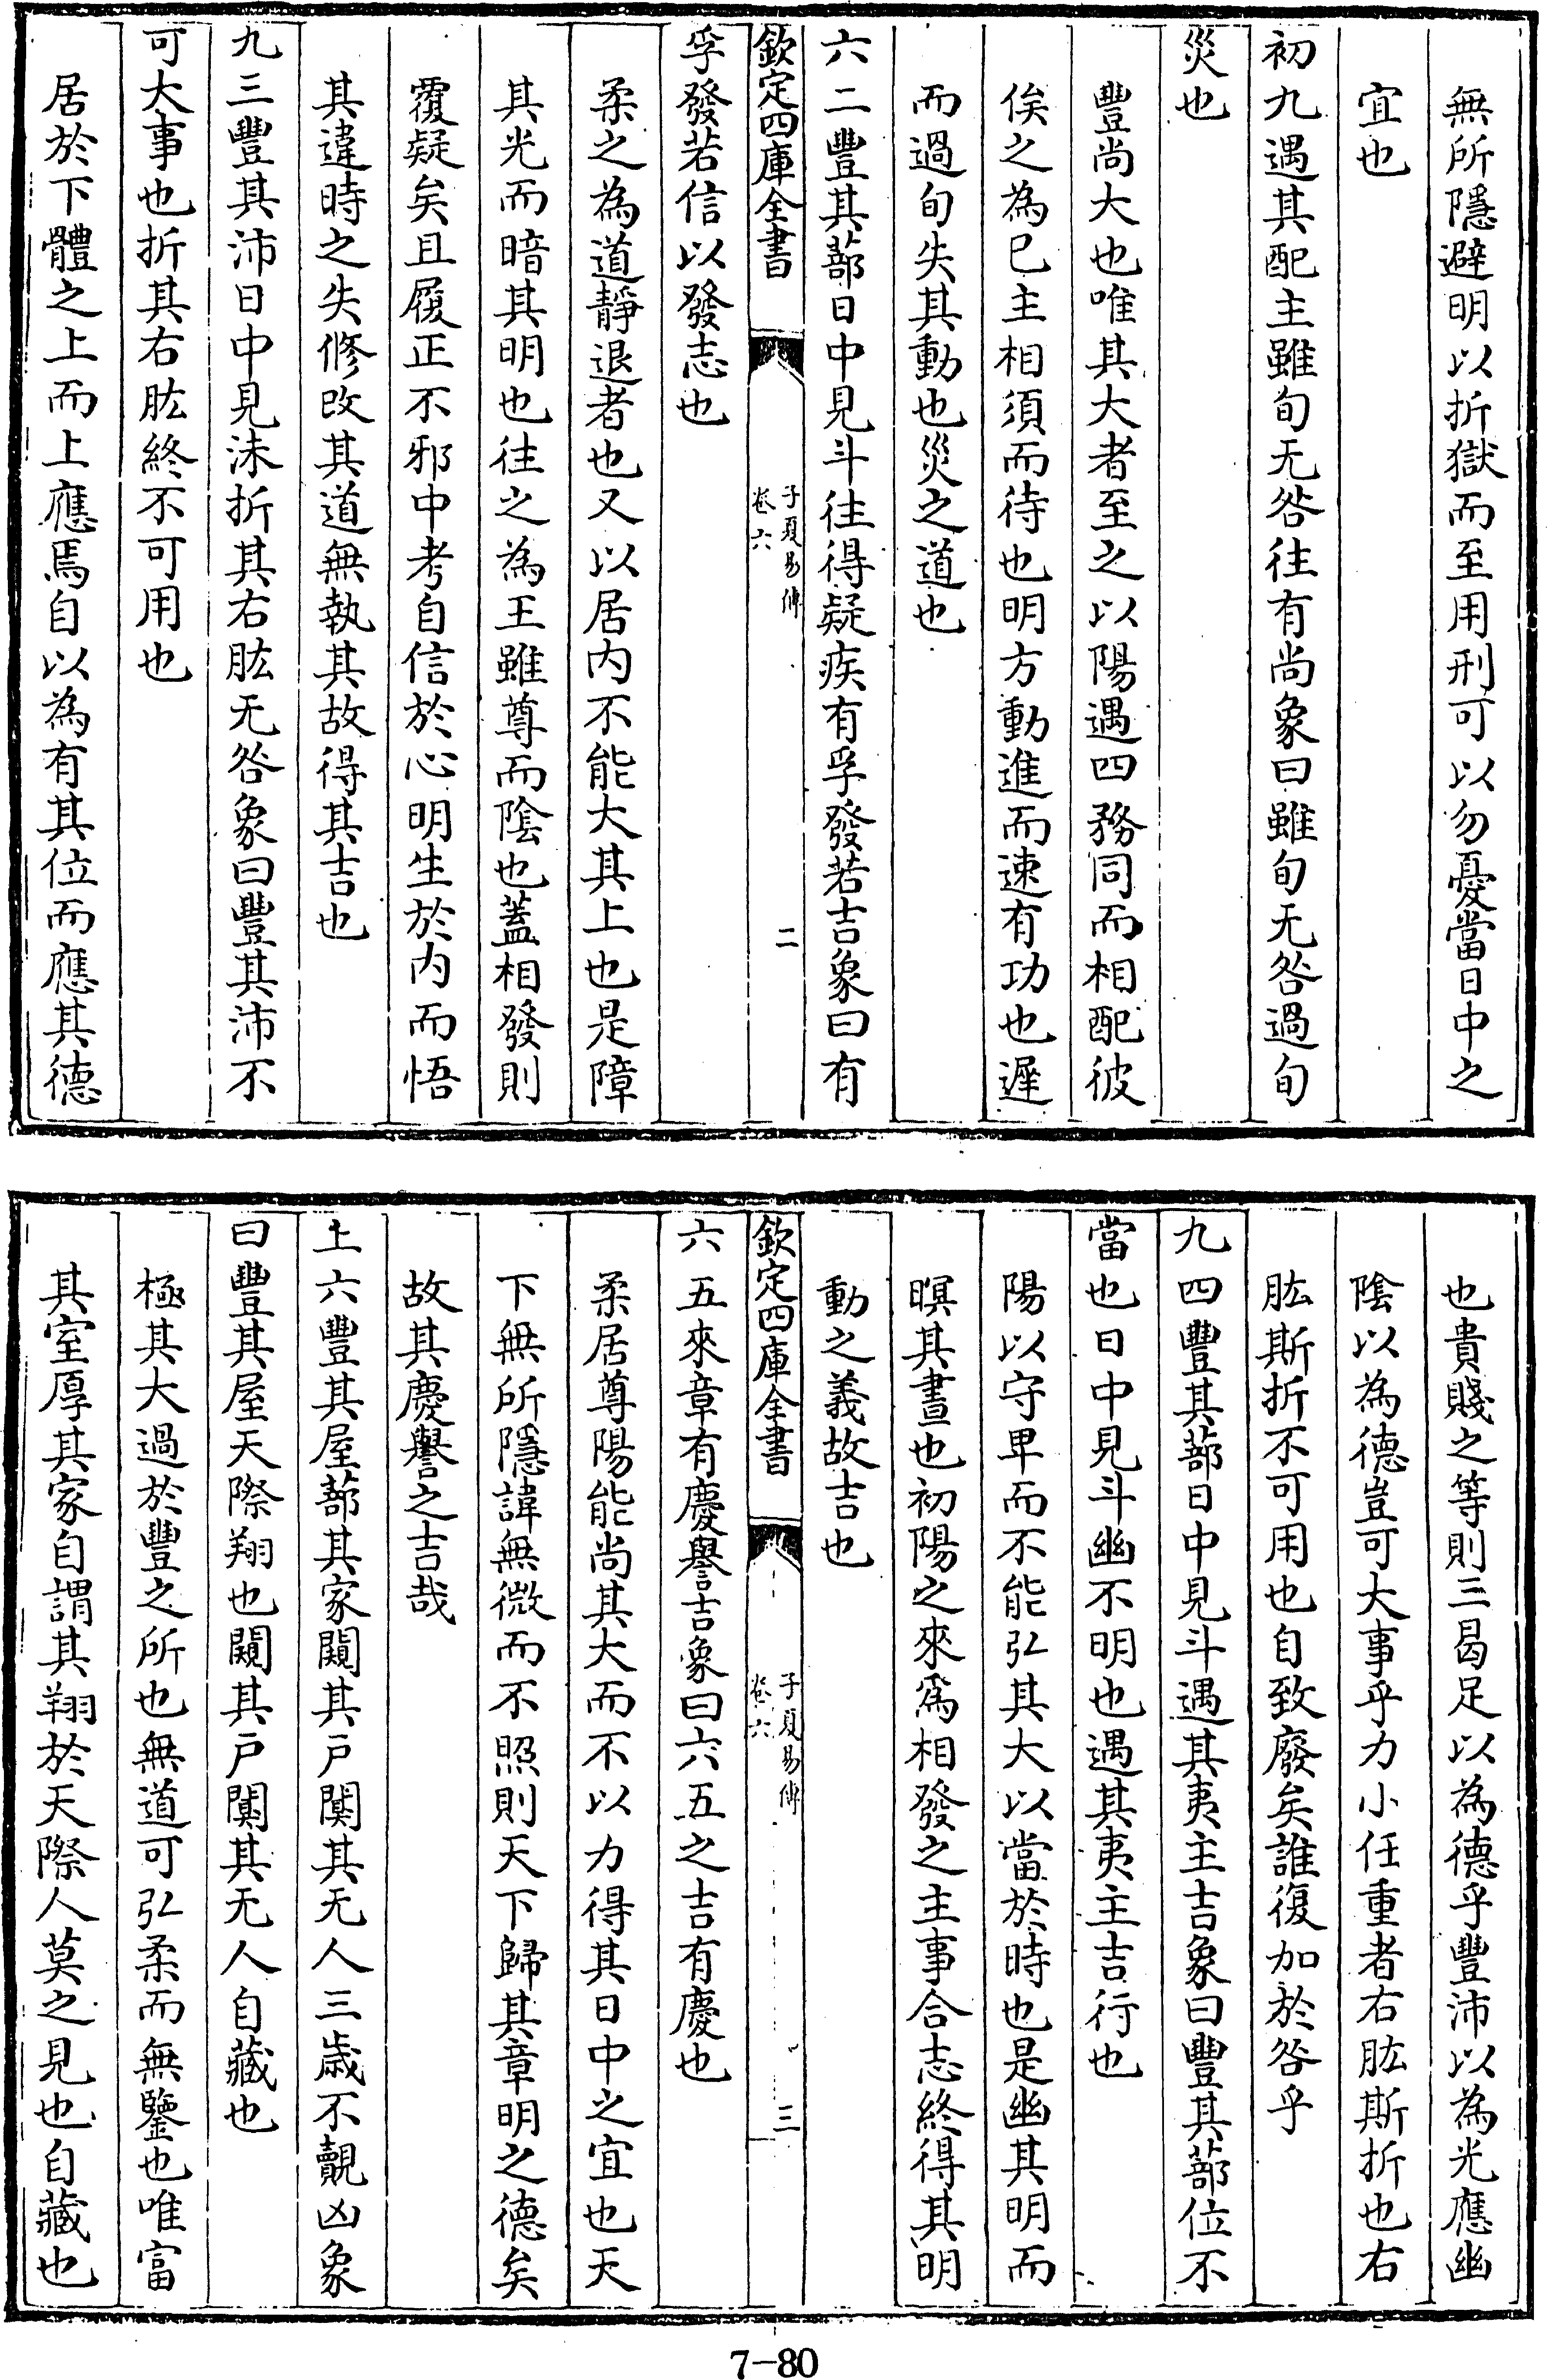 無所隱避明以折獄而至用刑可以勿憂當日中之
宜也
初九遇其配主雖旬无咎往有尚象曰雖旬无咎過旬
災也
豐尚大也唯其大者至之以陽遇四務同而相配彼
俟之為已主相須而待也明方動進而速有功也遲
而過旬失其動也災之道也
六二豐其蔀日中見斗往得疑疾有孚發若吉象曰有
欽定四庫全書
子夏易傳
卷六
二
孚發若信以發志也
柔之為道靜退者也又以居内不能大其上也是障
其光而暗其明也往之為王雖尊而陰也蓋相發則
覆疑矣且履正不邪中考自信於心明生於内而悟
其違時之失修改其道無執其故得其吉也
九三豐其沛日中見沬折其右肱无咎象曰豐其沛不
可大事也折其右肱終不可用也
居於下體之上而上應焉自以為有其位而應其德
也貴賤之等則三曷足以為德乎豐沛以為光應幽
陰以為德豈可大事乎力小任重者右肱斯折也右
肱斯折不可用也自致廢矣誰復加於咎乎
九四豐其蔀日中見斗遇其夷主吉象曰豐其蔀位不
當也日中見斗幽不明也遇其夷主吉行也
陽以守卑而不能弘其大以當於時也是幽其明而
暝其晝也初陽之來為相發之主事合志終得其明
動之義故吉也
欽定四庫全書
子夏易傳
卷六
三
六五來章有慶譽吉象曰六五之吉有慶也
柔居尊陽能尚其大而不以力得其日中之宜也天
下無所隱諱無微而不照則天下歸其章明之德矣
故其慶譽之吉哉
上六豐其屋蔀其家闚其戶闃其无人三歲不覿凶象
曰豐其屋天際翔也闚其戶闃其无人自藏也
極其大過於豐之所也無道可弘柔而無鑒也唯富
其室厚其家自謂其翔於天際人莫之見也自藏也
7-80